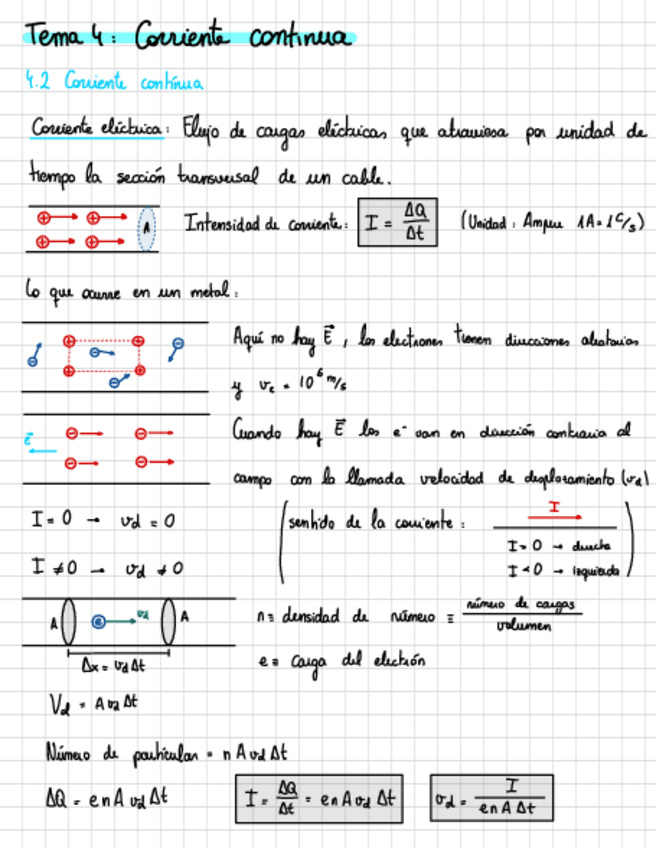 Tema 4: Corriente continua
4.2 Corriente contínua
Corriente eléctrica: Flujo de cargas eléctricas que atraviesa por unidad de
tiempo la sección transversal de un cable.
A Intensidad de corriente: I = ΔQ/Δt (Unidad: Ampere 1A = 1 C/s)
Lo que ocurre en un metal:
Aquí no hay E⃗, los electrones tienen direcciones aleatorias
y v_e = 10⁶ m/s
E⃗ Cuando hay E⃗ los e⁻ van en dirección contraria al
campo con la llamada velocidad de desplazamiento (v_d)
I = 0 → v_d = 0
(sentido de la corriente: I
I > 0 → derecha
I ≠ 0 → v_d ≠ 0
I < 0 → izquierda)
A e v_d A
n ≡ densidad de número ≡ número de cargas/volumen
Δx = v_d Δt
e ≡ Carga del electrón
V_d = A v_d Δt
Número de partículas = n A v_d Δt
ΔQ = e n A v_d Δt I = ΔQ/Δt = e n A v_d Δt v_d = I/(e n A Δt)